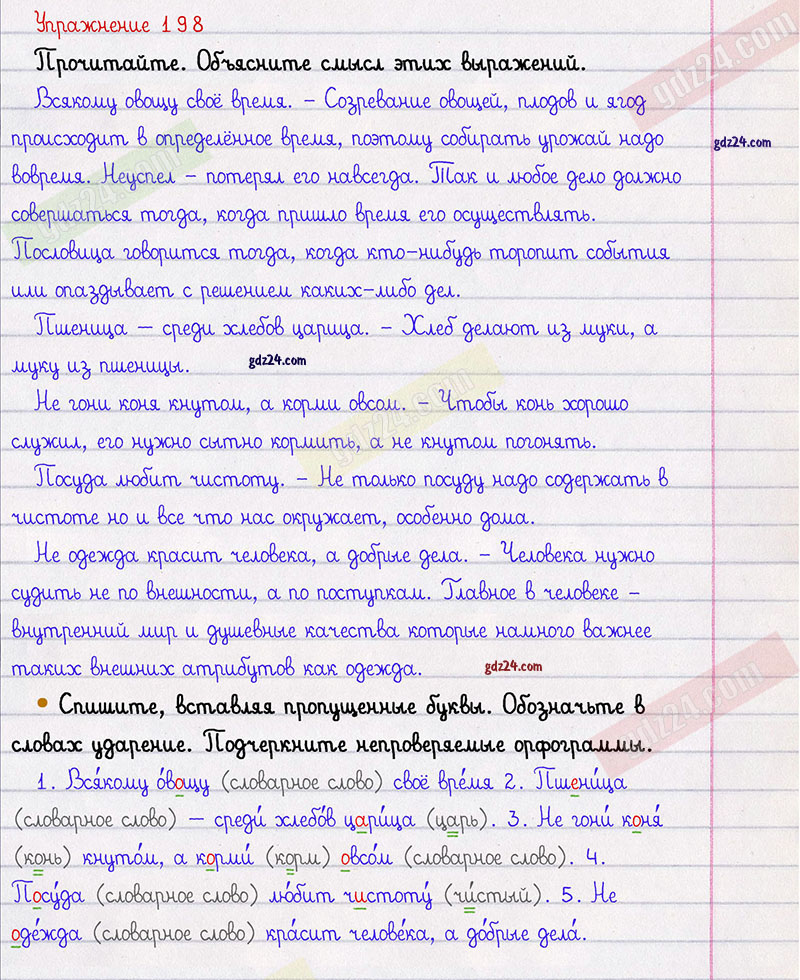 Упражнение 198
Прочитайте. Объясните смысл этих выражений.
Всякому овощу своё время. – Созревание овощей, плодов и ягод
происходит в определённое время, поэтому собирать урожай надо
gdz24.com
вовремя. Неуспел – потерял его навсегда. Так и любое дело должно
совершаться тогда, когда пришло время его осуществлять.
Пословица говорится тогда, когда кто-нибудь торопит события
или опаздывает с решением каких-либо дел.
Пшеница – среди хлебов царица. – Хлеб делают из муки, а
муку из пшеницы.
gdz24.com
Не гони коня кнутом, а корми овсом. – Чтобы конь хорошо
служил, его нужно сытно кормить, а не кнутом погонять.
Посуда любит чистоту. – Не только посуду надо содержать в
чистоте но и все что нас окружает, особенно дома.
Не одежда красит человека, а добрые дела. – Человека нужно
судить не по внешности, а по поступкам. Главное в человеке –
внутренний мир и душевные качества которые намного важнее
таких внешних атрибутов как одежда.
gdz24.com
• Спишите, вставляя пропущенные буквы. Обозначьте в
словах ударение. Подчеркните непроверяемые орфограммы.
1. Вся́кому о́вощу (словарное слово) своё вре́мя 2. Пшени́ца
(словарное слово) – среди́ хлебо́в цари́ца (ца́рь). 3. Не гони́ коня́
(ко́нь) кнуто́м, а корми́ (ко́рм) овсо́м (словарное слово). 4.
Посу́да (словарное слово) лю́бит чистоту́ (чи́стый). 5. Не
оде́жда (словарное слово) кра́сит челове́ка, а до́брые дела́.
gdz24.com
gdz24.com
gdz24.com
gdz24.com